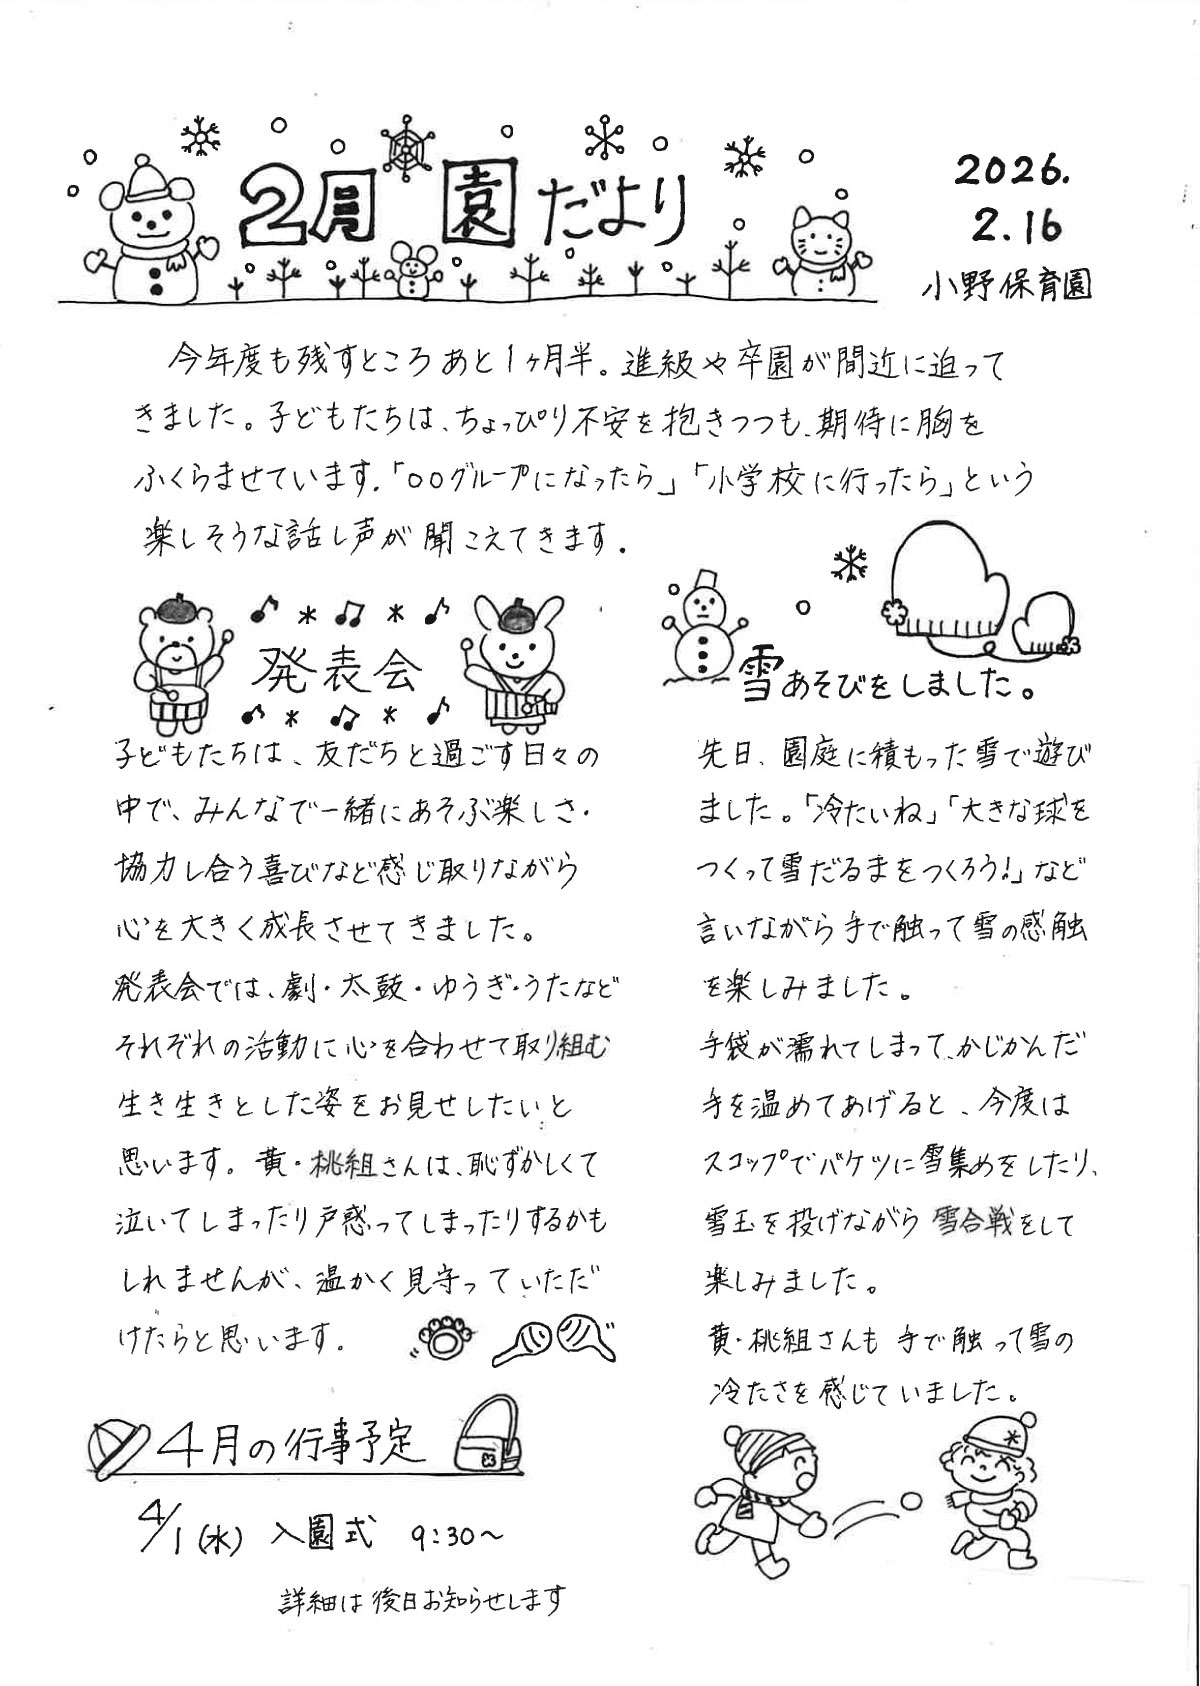 2月 園だより
2026.
2.16
小野保育園
今年度も残すところあと1ヶ月半。進級や卒園が間近に迫って
きました。子どもたちは、ちょっぴり不安を抱きつつも、期待に胸を
ふくらませています。「○○グループになったら」「小学校に行ったら」という
楽しそうな話し声が聞こえてきます。
発表会
子どもたちは、友だちと過ごす日々の
中で、みんなで一緒にあそぶ楽しさ・
協力し合う喜びなど感じ取りながら
心を大きく成長させてきました。
発表会では、劇・太鼓・ゆうぎ・うたなど
それぞれの活動に心を合わせて取り組む
生き生きとした姿をお見せしたいと
思います。黄・桃組さんは、恥ずかしくて
泣いてしまったり戸惑ってしまったりするかも
しれませんが、温かく見守っていただ
けたらと思います。
雪あそびをしました。
先日、園庭に積もった雪で遊び
ました。「冷たいね」「大きな球を
つくって雪だるまをつくろう!」など
言いながら手で触って雪の感触
を楽しみました。
手袋が濡れてしまって、かじかんだ
手を温めてあげると、今度は
スコップでバケツに雪集めをしたり、
雪玉を投げながら雪合戦をして
楽しみました。
黄・桃組さんも手で触って雪の
冷たさを感じていました。
4月の行事予定
4/1(水) 入園式 9:30〜
詳細は後日お知らせします